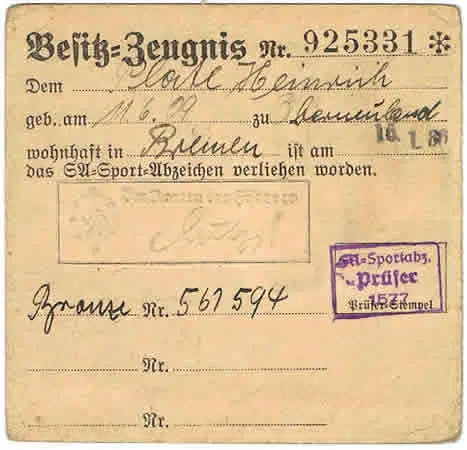 Besitz=Zeugnis Nr. 925331 *
Dem Heinrich
geb. am 11.6.99 zu Oberneuland
wohnhaft in Bremen ist am 16. 1. 36
das SA=Sport=Abzeichen verliehen worden.
Im Namen des Führers
Bronze Nr. 561594
SA=Sportabz.
Prüfer
1577
Prüfer=Stempel
Nr.
Nr.